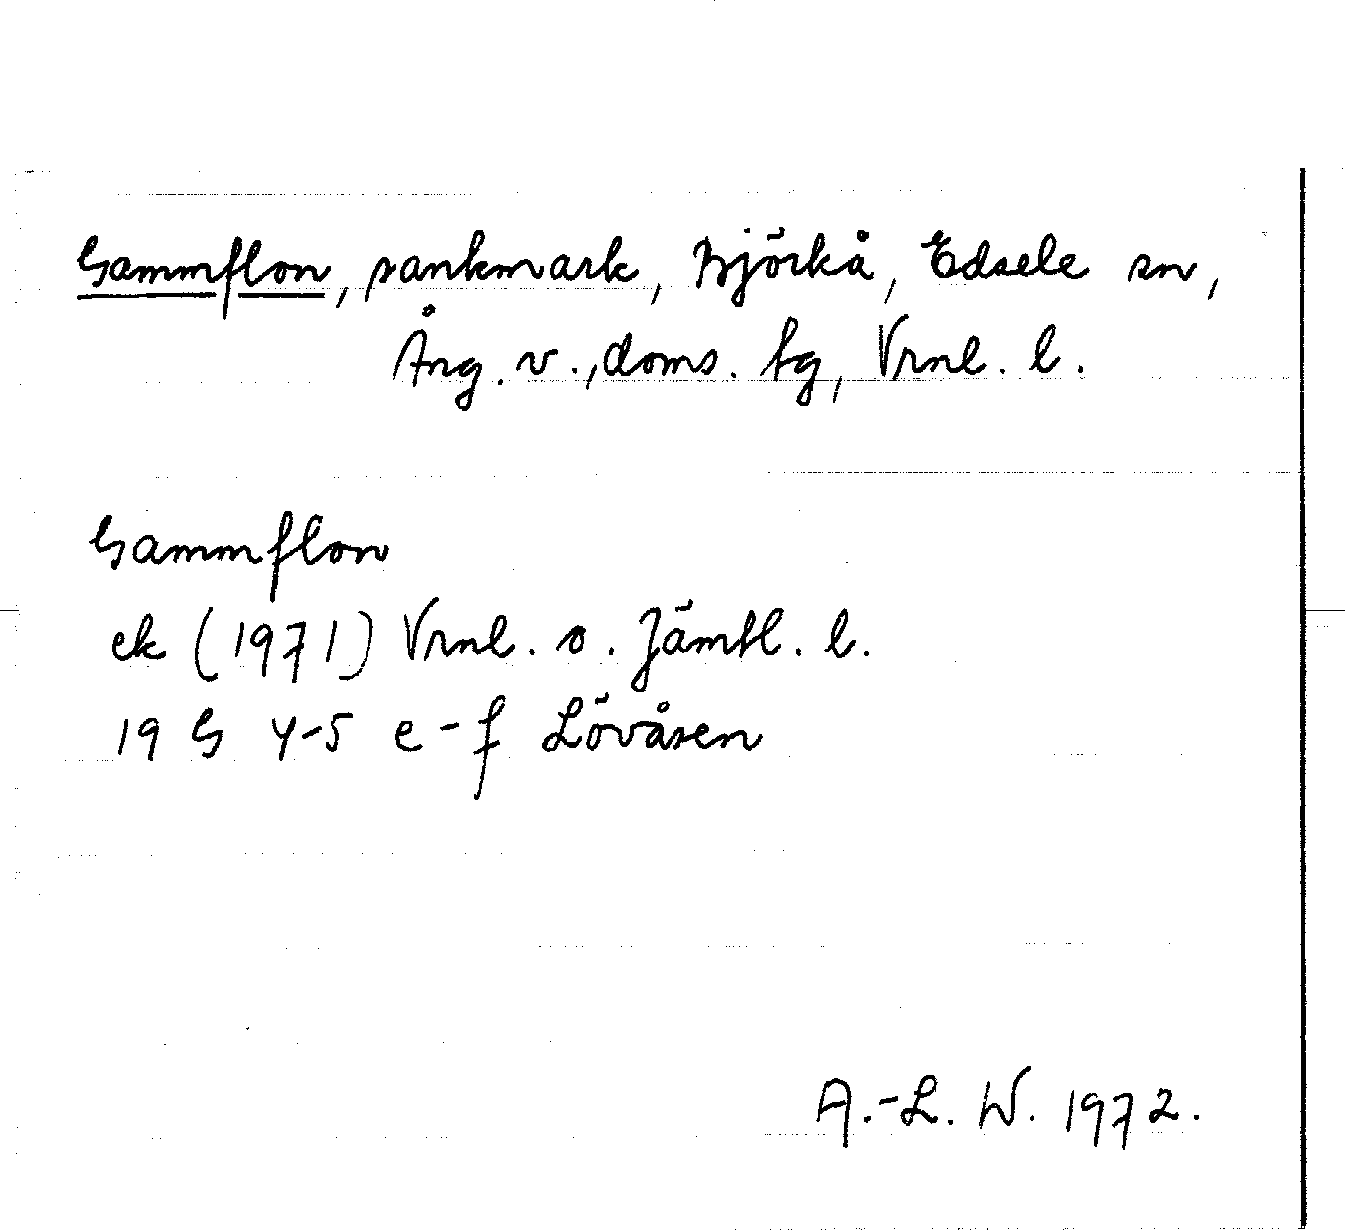 Gammflon, sankmark, Björkå, Edsele sn,
Ång. v., doms. tg, Vrnl. l.
Gammflon
ek (1971) Vrnl. o. Jämtl. l.
19 G 4-5 e-f Lövåsen
A.-L. W. 1972.